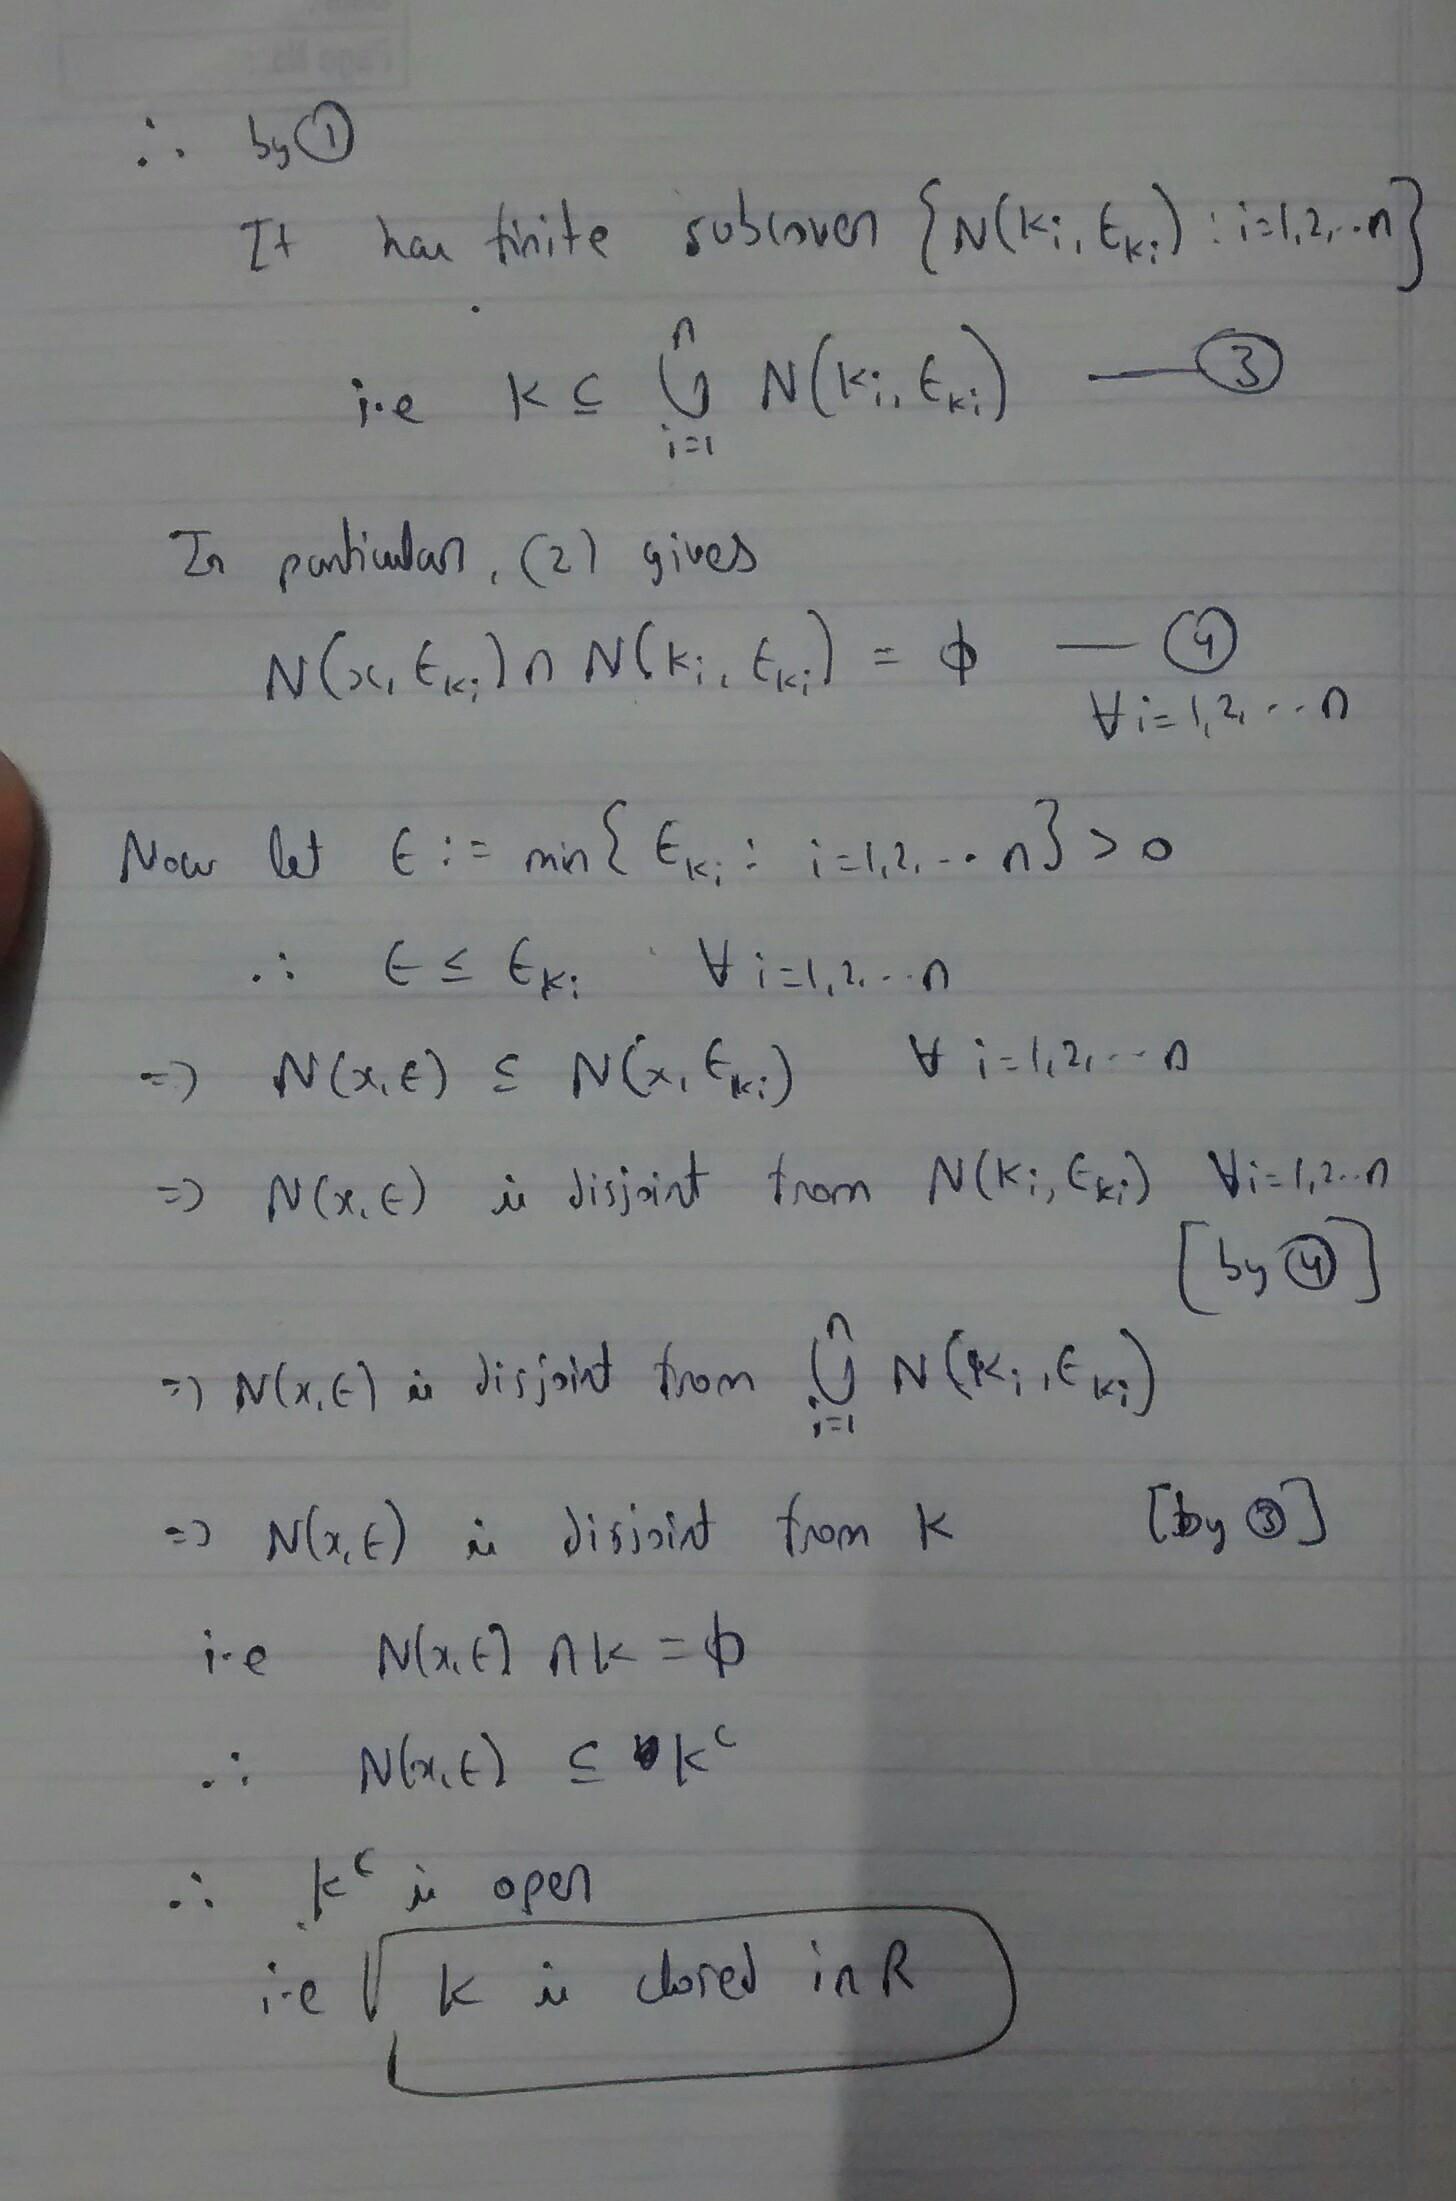 ∴ by ①
It has finite subcover {N(ki, ϵki) : i=1,2,..n}
i.e K ⊆ ⋃ᵢ₌₁ⁿ N(ki, ϵki) — ③
In particular, (2) gives
N(x, ϵki) ∩ N(ki, ϵki) = ϕ — ④
∀ i=1,2,...n
Now let ϵ := min{ϵki : i=1,2,...n} > 0
∴ ϵ ≤ ϵki ∀ i=1,2,...n
=> N(x,ϵ) ⊆ N(x, ϵki) ∀ i=1,2,...n
=> N(x,ϵ) is disjoint from N(ki, ϵki) ∀ i=1,2..n
[by ④]
=> N(x,ϵ) is disjoint from ⋃ᵢ₌₁ⁿ N(ki, ϵki)
=> N(x,ϵ) is disjoint from K [by ③]
i.e N(x,ϵ) ∩ K = ϕ
∴ N(x,ϵ) ⊆ Kᶜ
∴ Kᶜ is open
i.e K is closed in R